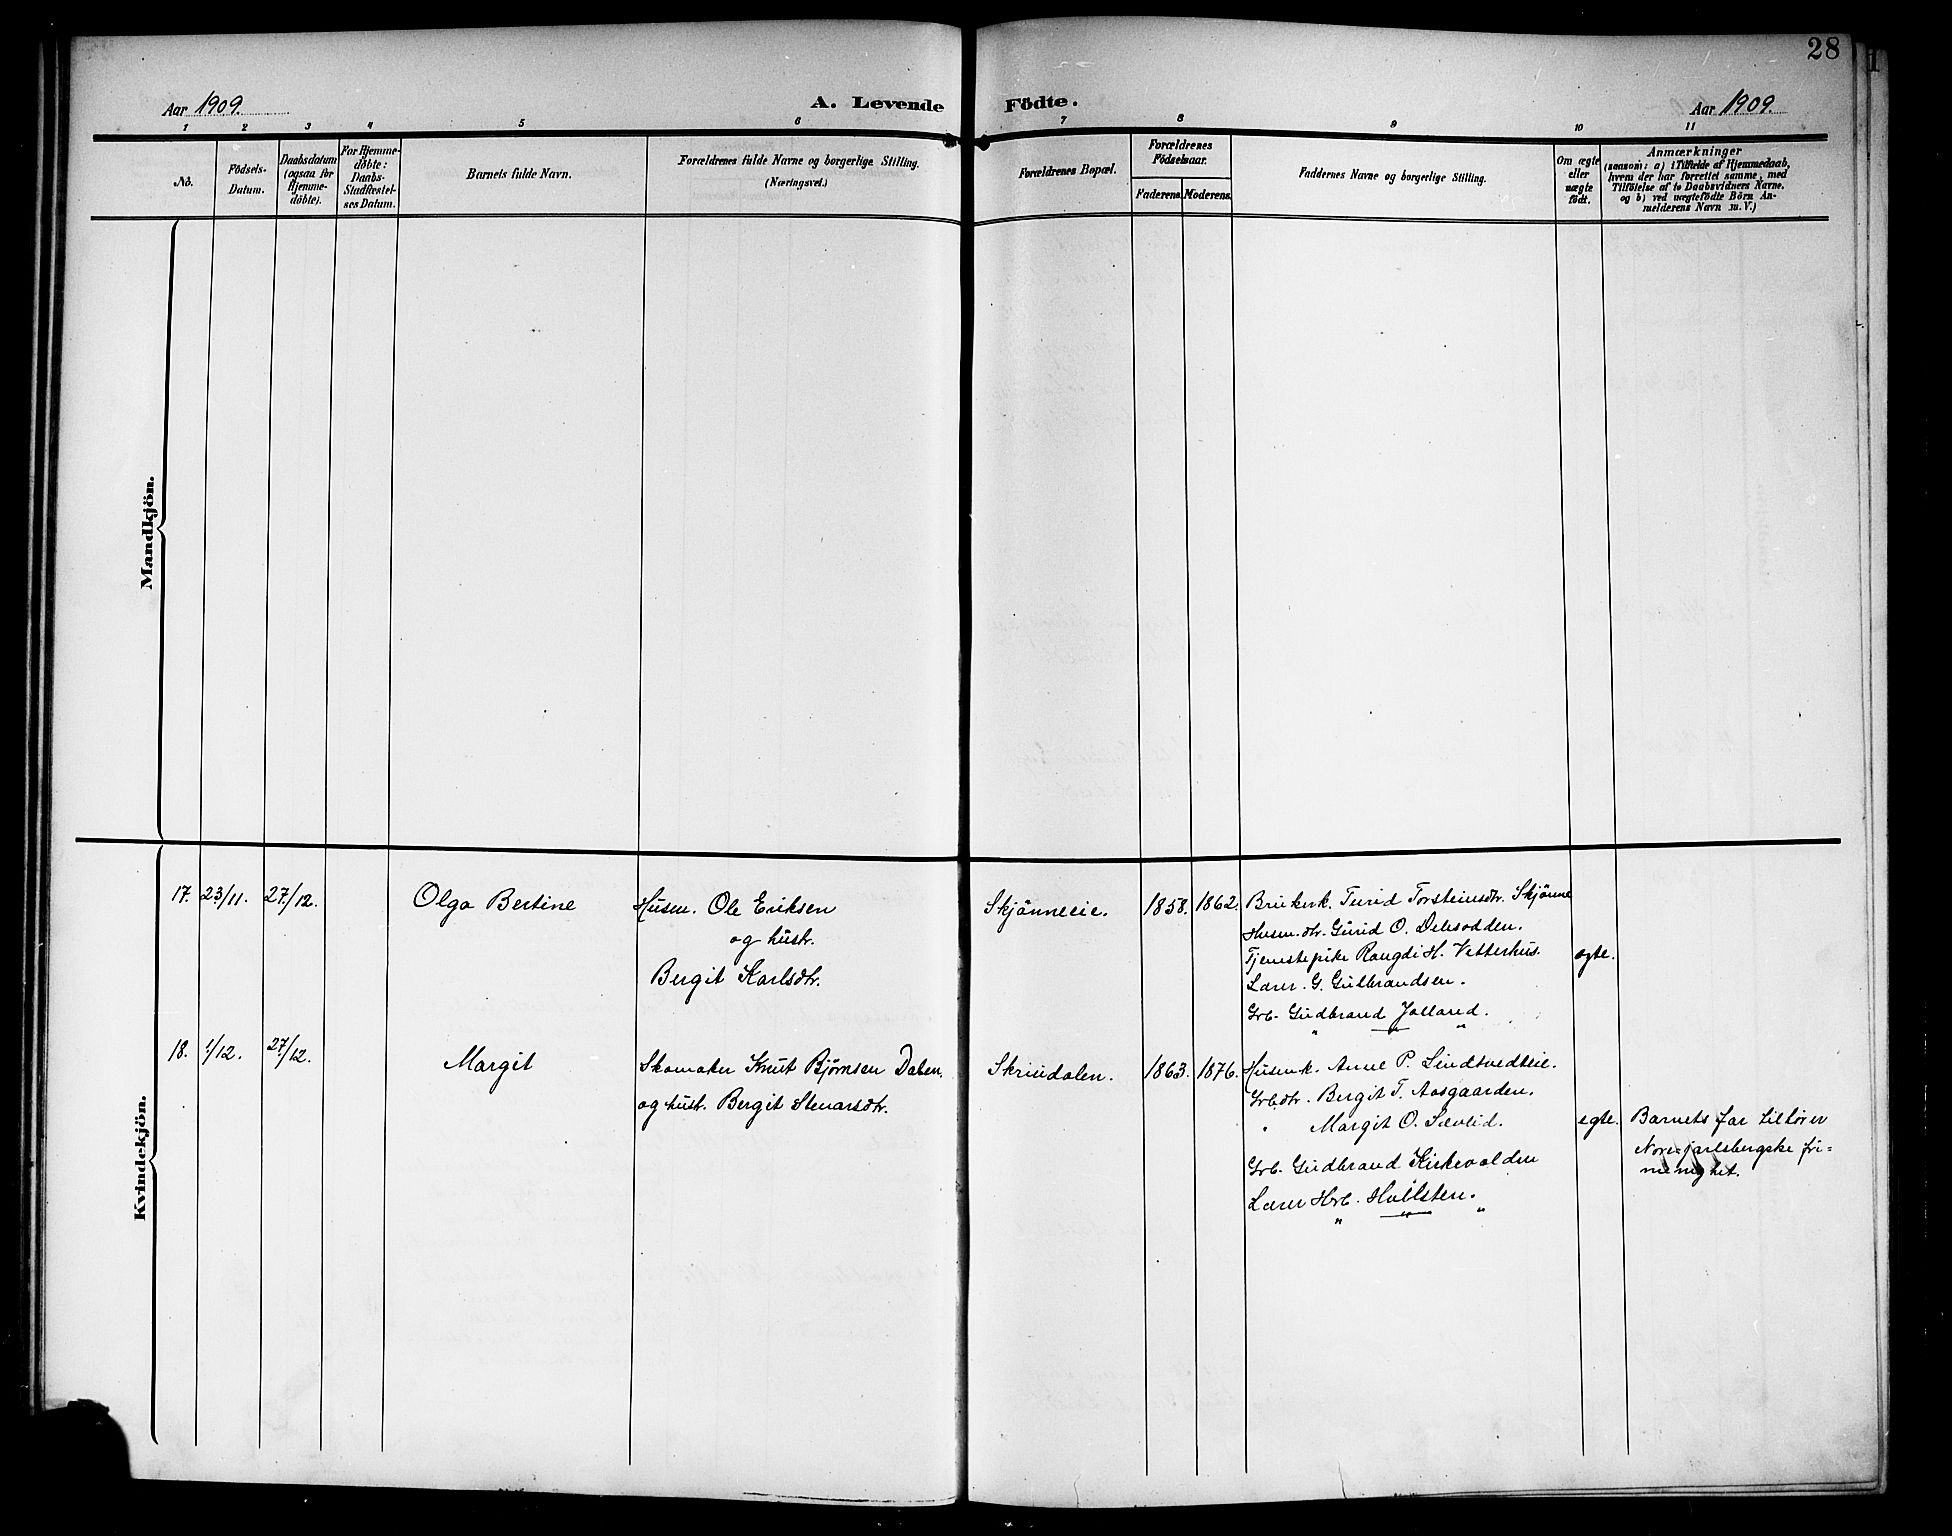 28
Aar 1909.
A. Levende Födte.
Aar 1909.
1 2 3 4 5 6 7 8 9 10 11
No.
Födsels-
Datum.
Daabsdatum
(ogsaa for
Hjemme-
döbte).
For Hjemme-
döbte:
Daabs-
Stadfæstel-
ses Datum.
Barnets fulde Navn.
Forældrenes fulde Navne og borgerlige Stilling.
(Næringsvei.)
Forældrenes Bopæl.
Forældrenes
Födselsaar.
Faderens. Moderens.
Faddernes Navne og borgerlige Stilling.
Om ægte
eller
uægte
födt.
Anmærkninger
(saasom: a) i Tilfælde af Hjemmedaab,
hvem der har forrettet samme, med
Tilföielse af to Daabsvidners Navne,
og b) ved uægtefödte Börn An-
melderens Navn m. V.)
Mandkjön.
Kvindekjön.
17. 23/11. 27/12.
Olga Bertine
Husm. Ole Eriksen
og hustr.
Bergit Karlsdtr.
Skjönneeie.
1858. 1862.
Brukerk. Turid Torsteinsdtr. Skjönne
Husm. dtr. Gurid O. Delesodden.
Tjenestepike Raugdi H. Vetterhus.
Lærer. G. Gulbrandsen.
Grb. Gudbrand Jölland.
" — " — "
egte.
18. 1/12. 27/12.
Margit
Skomaker Knut Bjørnsen Dalen.
og hustr. Bergit Stenarsdtr.
Skrindalen.
1863. 1876.
Husmk. Anne P. Lindtvedteie.
Grb. dtr. Bergit T. Aasgaarden.
" Margit O. Sævlid.
Grb. Gudbrand Kirkevolden
Lærer Hrb. Hallsten.
" — " — "
egte.
Barnets far tilhører
Nore-jarlsbergske fri=
menighet.